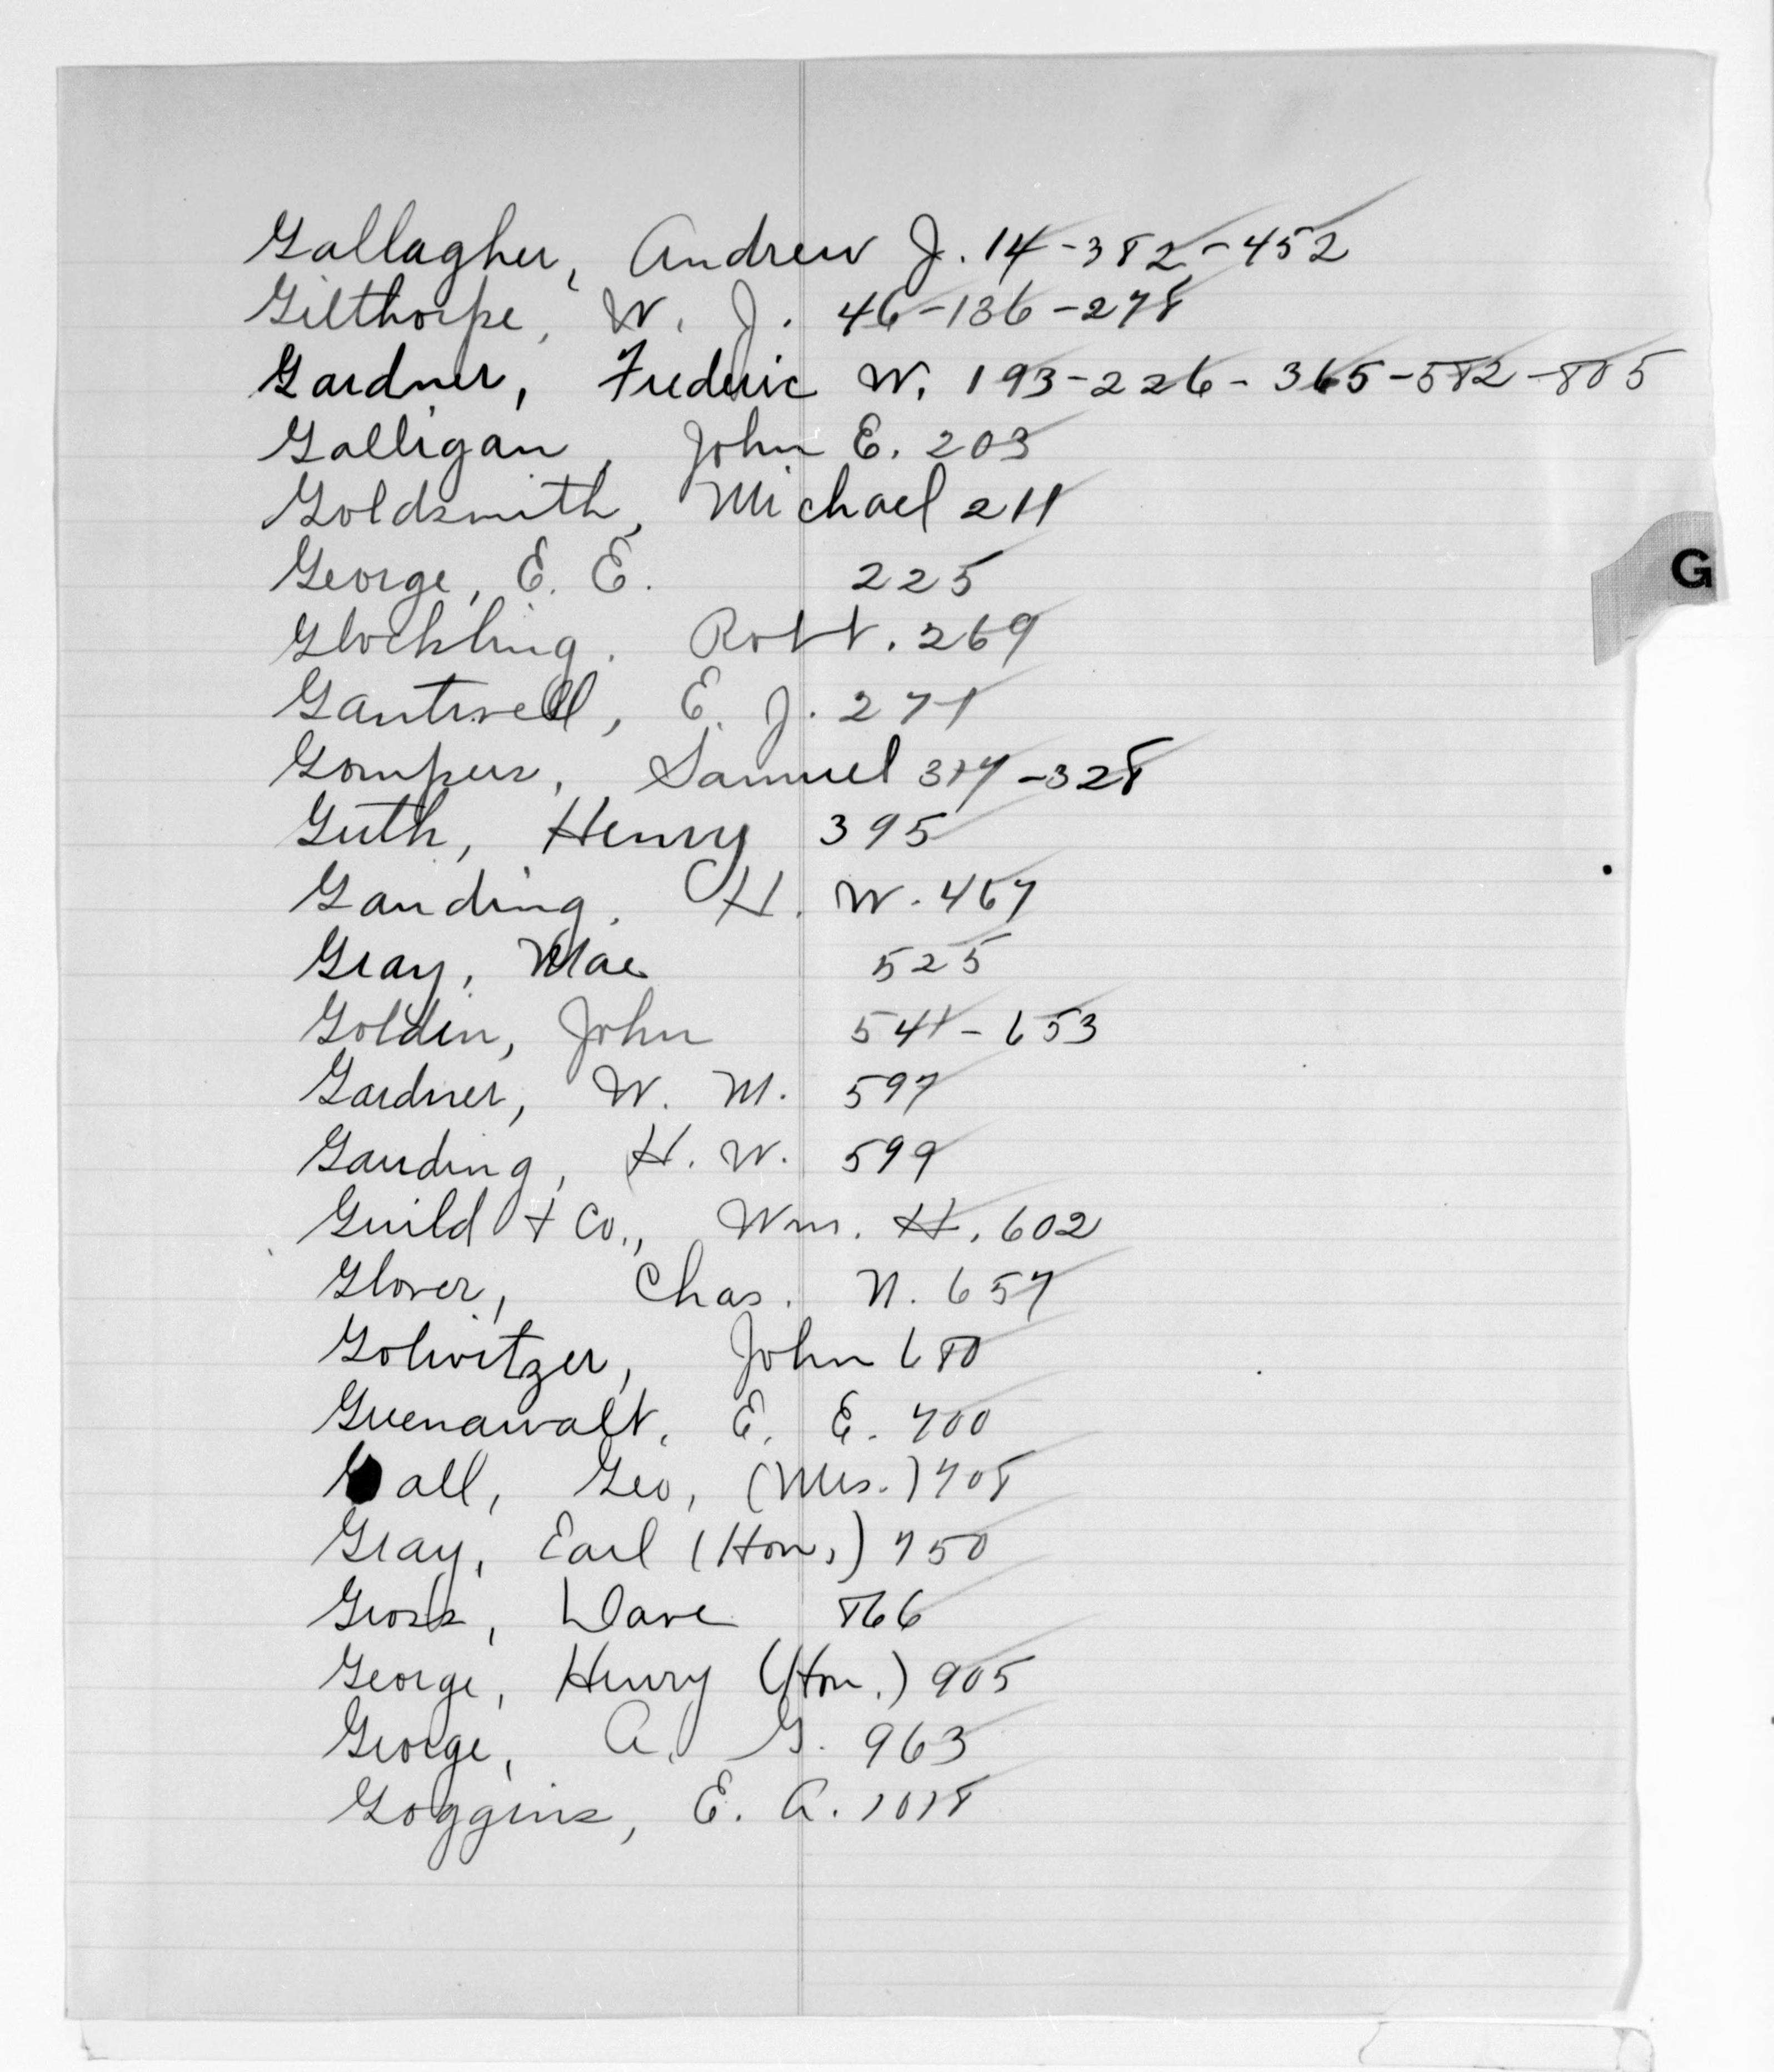 Gallagher, Andrew J. 14-382-452
Gilthorpe, W. J. 46-136-278
Gardner, Frederic W. 193-226-365-582-805
Galligan, John E. 203
Goldsmith, Michael 211
George, E. E. 225
G
Glockling, Robt. 269
Gantwell, E. J. 271
Gompers, Samuel 317-328
Guth, Henry 395
Gauding, H. W. 467
Gray, Mae 525
Golden, John 541-653
Gardner, W. M. 597
Gauding, H. W. 599
Guild & Co., Wm. H. 602
Glover, Chas. N. 657
Goliwitzer, John 680
Greenawalt, E. E. 700
Gall, Geo, (Mrs.) 708
Gray, Earl (Hon.) 750
Gross, Dave 866
George, Henry (Hon.) 905
George, A. G. 963
Goggins, E. A. 1018